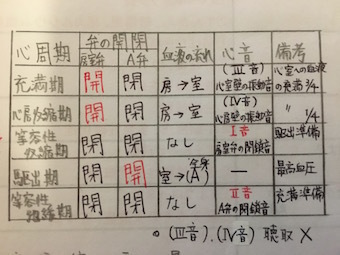 心周期 弁の開閉 血液の流れ 心音 備考
房室弁 A弁
充満期 開 閉 房→室 (Ⅲ音) 心室壁の振動音 心室への血液の充満 3/4
心房収縮期 開 閉 房→室 (Ⅳ音) 心房壁の振動音 〃 1/4
等容性収縮期 閉 閉 なし Ⅰ音 房室弁の閉鎖音 駆出準備
駆出期 閉 開 室→(A) ー 最高血圧
等容性弛緩期 閉 閉 なし Ⅱ音 A弁の閉鎖音 充満準備
。(Ⅲ音).(Ⅳ音) 聴取 X